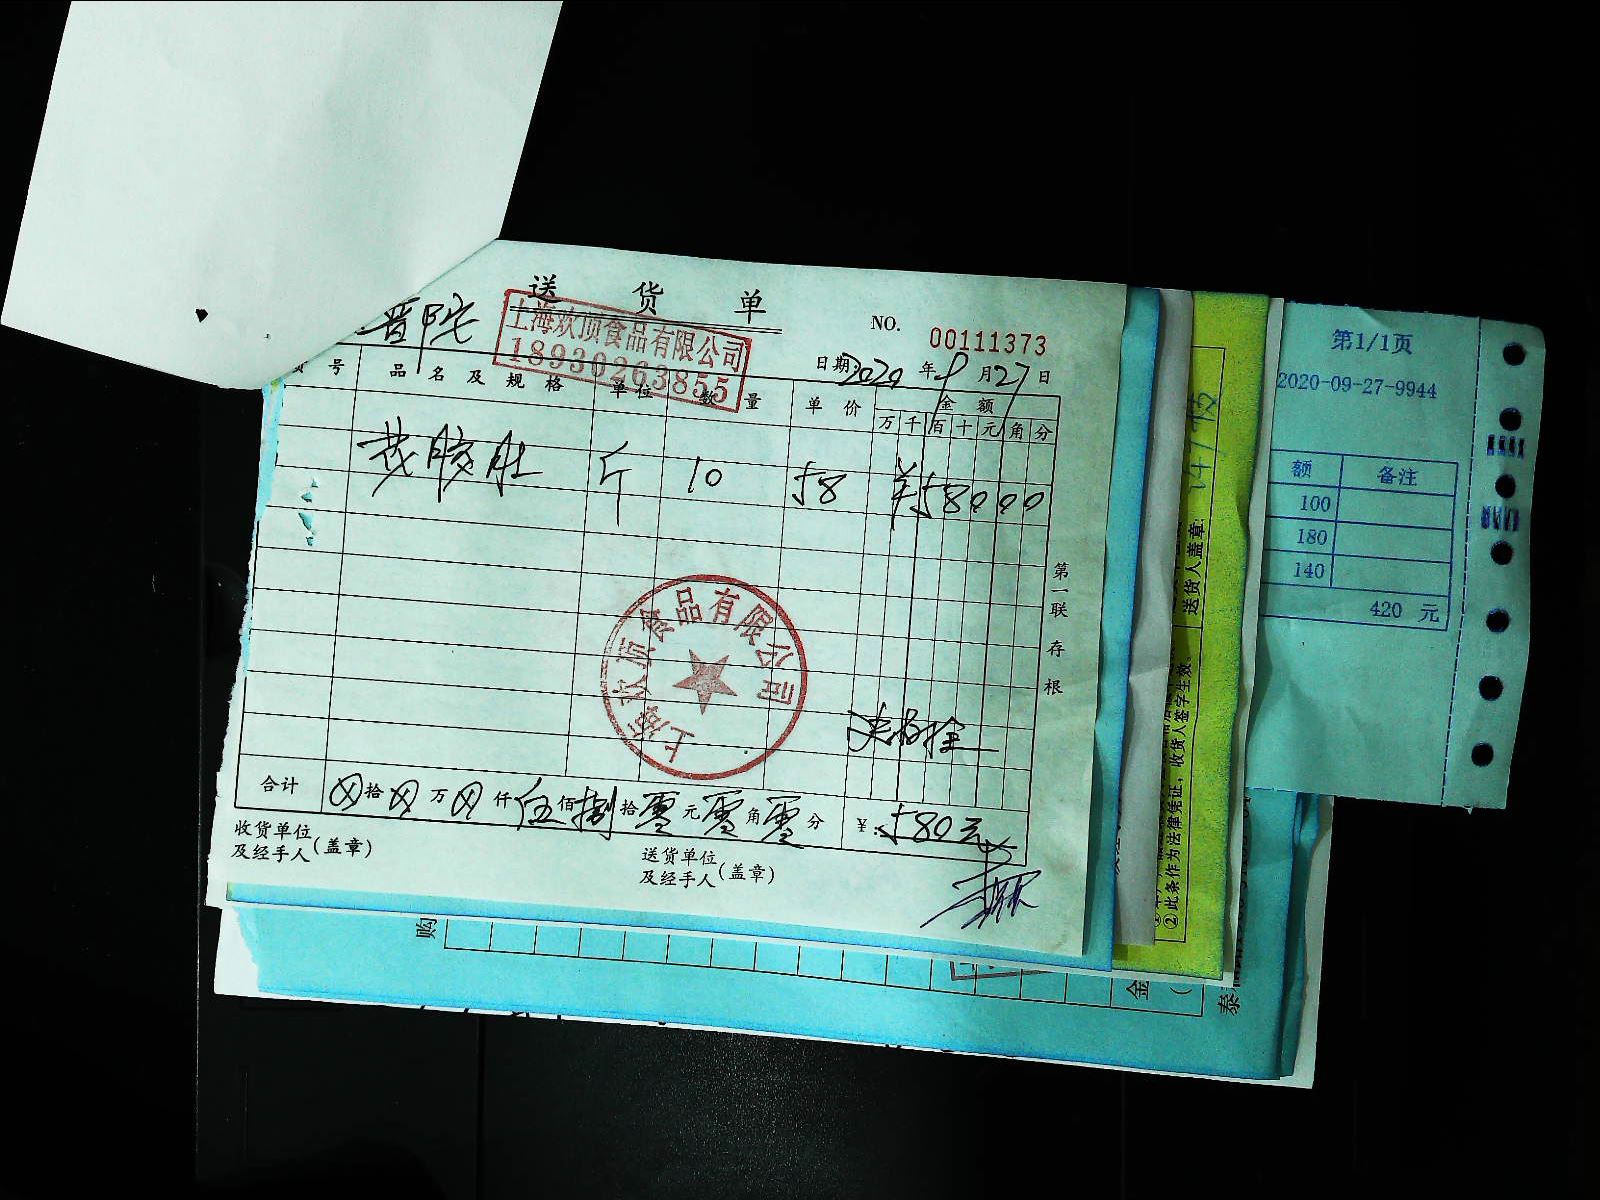 送货单
上海欢顶食品有限公司
18930263855
NO. 00111373
晋陀
日期: 2020 年 9 月 27 日
号 品名及规格 单位 数量 单价 金额
万 千 百 十 元 角 分
胶肚 斤 10 58 ¥58000
上海欢顶食品有限公司
第一联 存根
合计 拾 万 仟 伍 佰 捌 拾 零 元 零 角 零 分 ¥: 580元
收货单位
及经手人(盖章)
送货单位
及经手人(盖章)
第1/1页
2020-09-27-9944
额 备注
100
180
140
420 元
送货人盖章
②此条作为法律凭证、收货人签字生效、
购
金
泰